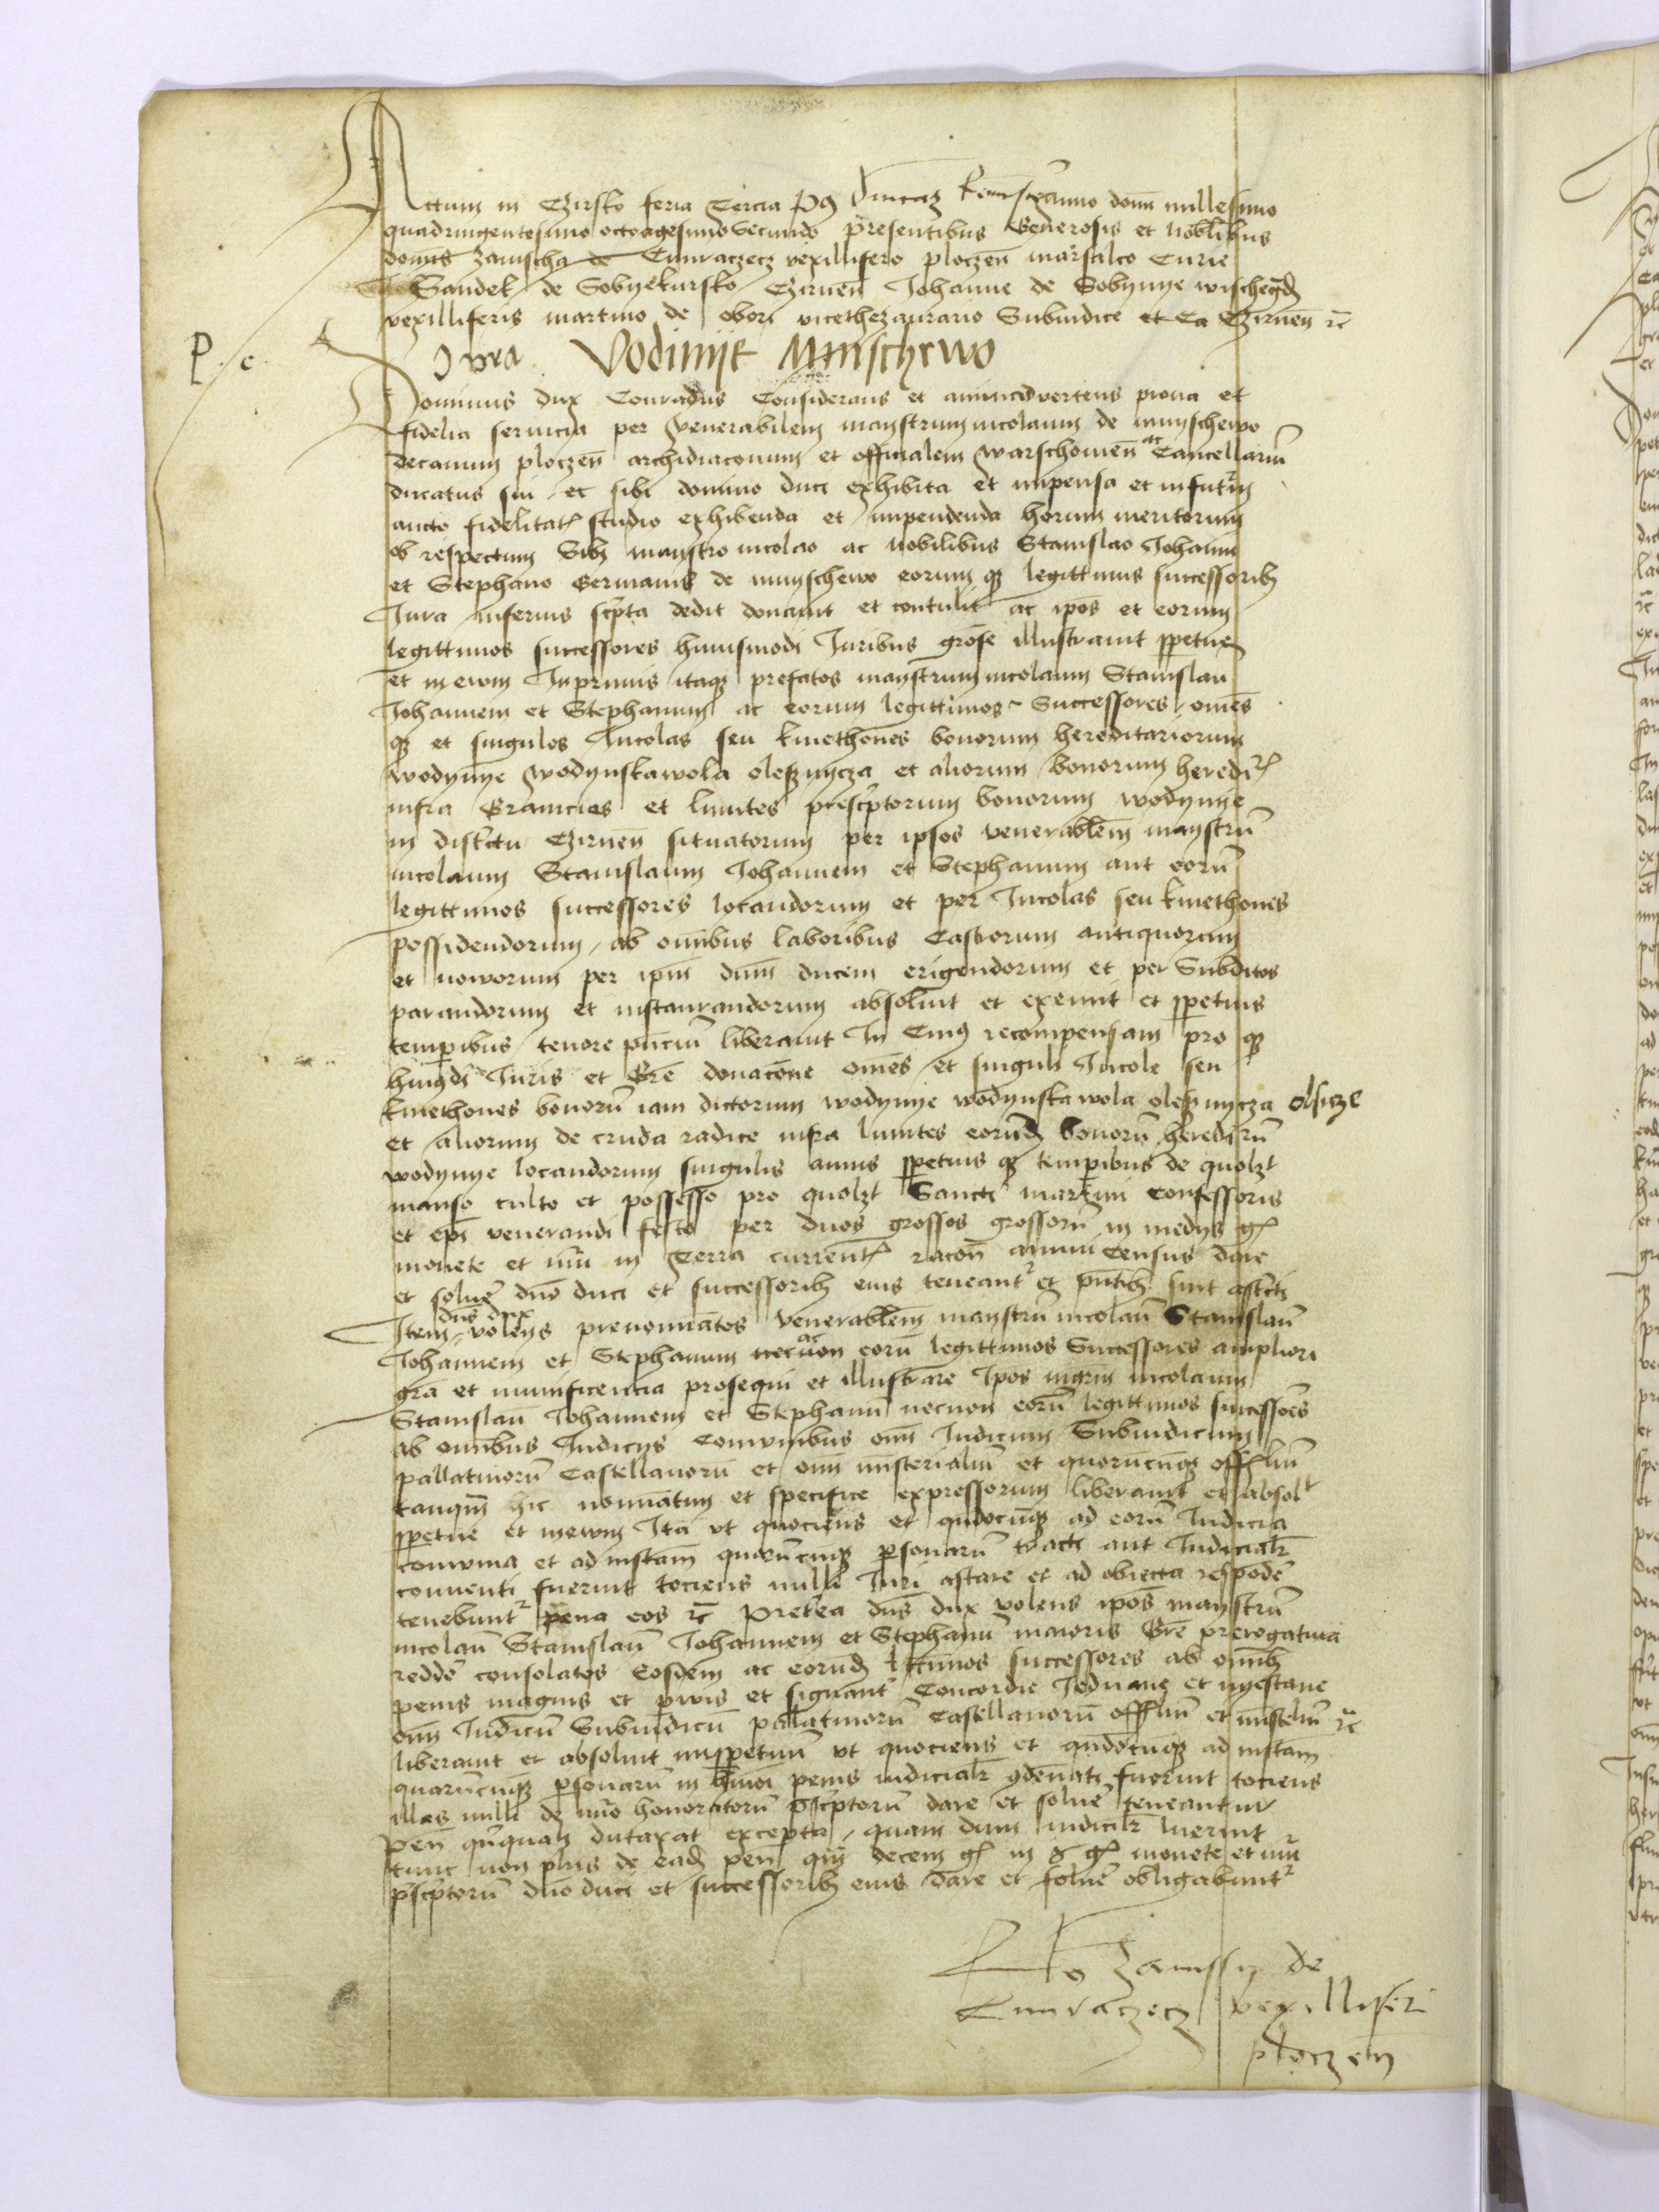 Actum in Czirsko feria Tercia anno domi millesimo
quadringentesimo octoagesimo Secundo presentibus Generosis et Nobilibus
domis Zamscha de Cunraczecz vexillifero ploczen marsalco Curie
Sandek de Sobyekursko Czirnen Johanne de Sobynye wischegrd
vexilliferis martino de obori vicethezaurario Subiudice et Ca Czirnen etc
P. c
Jura Vodinije Mnischewo
Dominus dux Conradus Considerans et animadvertens prona et
fidelia seruicia per venerabilem maystrum nicolaum de mnyschewo
decanum ploczen archidiaconum et officialem warschouien ac Cancellariu
ducatus sui et sibi domino duci exhibita et impensa et infutur
aucto fidelitatis studio exhibenda et impendenda horum meritorum
ob respectum Sibi maystro nicolao ac nobilibus Stanislao Johanni
et Stephano Germanis de mnyschewo eorum qz legittimis successorib
Jura inferius scripta dedit donauit et contulit ac ipos et eorum
legittimos successores huiusmodi Juribus grose illustrauit perpetue
et in ewm Inprimis itaqz prefatos maystrum nicolaum Stanislau
Johannem et Stephanum ac eorum legittimos Successores omes
qz et singulos Incolas seu kmethones bonorum hereditariorum
wodynye wodynskawola oleschnycza et aliorum bonorum heredit
infra Granicies et limites prescriptorum bonorum wodynye
in districtu Czirnen situatorum per ipsos venerabilem maystru
nicolaum Stanislaum Johannem et Stephanum aut eoru
legittimos successores locandorum et per Incolas seu kmethones
possidendorum ab omibus laboribus Castrorum antiquorum
et noworum per ipm dnm ducem erigendorum et per Subditos
parandorum et instaurandorum absoluit et exemit et perpetuis
temporibus tenore pncium liberauit In Cuius recompensam pro qz
huiusdi Juris et Gre donacone omes et singuli Incole seu
kmethones bonoru iam dictorum wodynye wodynska wola oleschnycza olsicze
et aliorum de cruda radice infra limites eorund bonoru hereditru
wodynye locandorum singulis annis perpetuis qz temporibus de quolzt
manso culto et possesso pro quolzt Sancti martini confessoris
et epi venerandi festo per duos grossos grossoru in medys gs
monete et nuri in Terra currentis racon annui Census dare
et soluere duo duci et successorib eius teneant et pntib sint astricti
Item dns dux volens prenominatos venerablem maystru nicolau Stanislau
Johannem et Stephanum ac eoru legittimos Successores ampliori
gra et munificencia prosequi et illustrare Ipos mgrm nicolaum
Stanislau Johannem et Stephanu necnon eoru legittimos successores
ab omibus Judicys Comunibus omi Judicum Subiudicum
pallatinoru Castellanoru et omi misterialiu et quorucuqz officliu
tanqm hic nominatim et specifice expressorum liberauit et absolt
perpetue et inewm Ita vt quociens et qndocuqz ad eoru Judicia
comunia et ad instam quarucuqz personaru tracti aut Judicialr
conuenti fuerint tociens nulli Juri astare et ad obiecta respode
tenebunt pena eos etc Preterea dns dux volens ipos maystru
nicolau Stanislau Johannem et Stephanu maioris Gre prerogatiua
redde consolatos Eosdem ac eorund ltimos successores ab omib
penis magnis et pruis et signant Concordie Jednane et nyestane
omi Judicu Subiudicu pallatinoru Castellanoru officliu et misteliu etc
liberauit et absoluit inperpetuu vt quociens et qndocuqz ad instam
quarucuqz personaru in hmoi penis iudicialr condenati fuerint tociens
illas nulli de nuo honoratoru pscriptoru dare et solue teneantur
Pen dutaxat excepta quam dum iudicilr luerint
tunc non plus de ead pen qm decem gs in gs monete et nuri
pscriptoru duo duci et successorib eius dare et solue obligabunt
Zamssy de
Cunraczecz vexillifer
ploczen